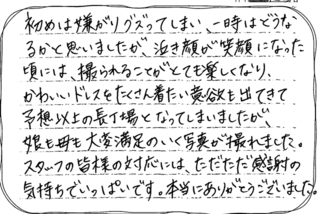 初めは嫌がりグズってしまい、一時はどうな
るかと思いましたが、泣き顔が笑顔になった
頃には、撮られることがとても楽しくなり、
かわいいドレスをたくさん着たい意欲も出てきて
予想以上の長丁場となってしまいましたが、
娘も母も大変満足のいく写真が撮れました。
スタッフの皆様の対応には、ただただ感謝の
気持ちでいっぱいです。本当にありがとうございました。